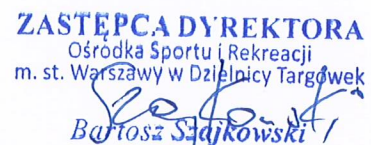 ZASTĘPCA DYREKTORA
Ośrodka Sportu i Rekreacji
m. st. Warszawy w Dzielnicy Targówek
Bartosz Szajkowski